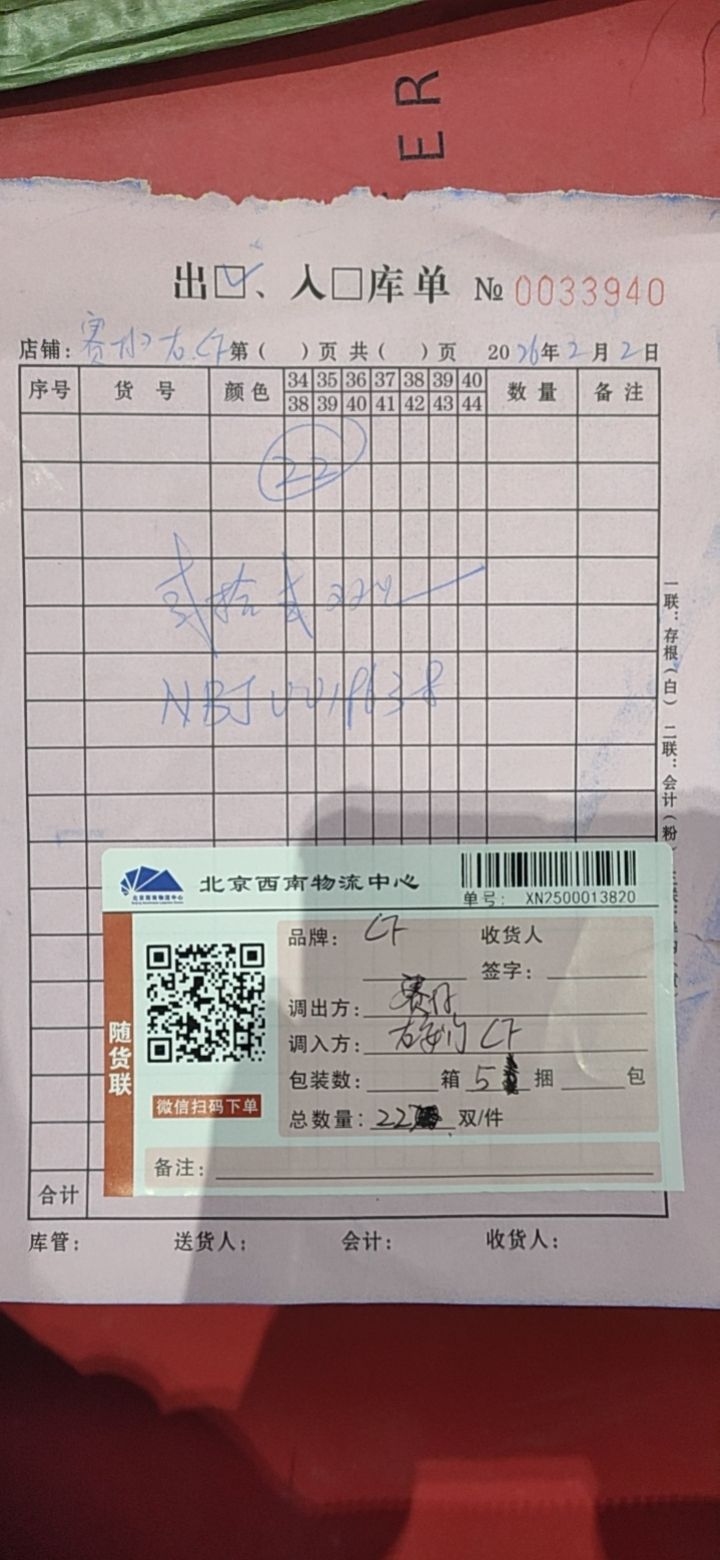 ER
出☑、入□库单 № 0033940
店铺: 赛 CF 第( )页 共( )页 2026年2月2日
序号 货号 颜色 34 35 36 37 38 39 40 数量 备注
38 39 40 41 42 43 44
22
贰拾贰双
NBJ0019638
一联:存根(白) 二联:会计(粉)
北京西南物流中心
单号: XN2500013820
随货联
微信扫码下单
品牌: CF 收货人
签字:
调出方: 赛
调入方: 右安门 CF
包装数: 箱 5 捆 包
总数量: 22 双/件
备注:
合计
库管: 送货人: 会计: 收货人: